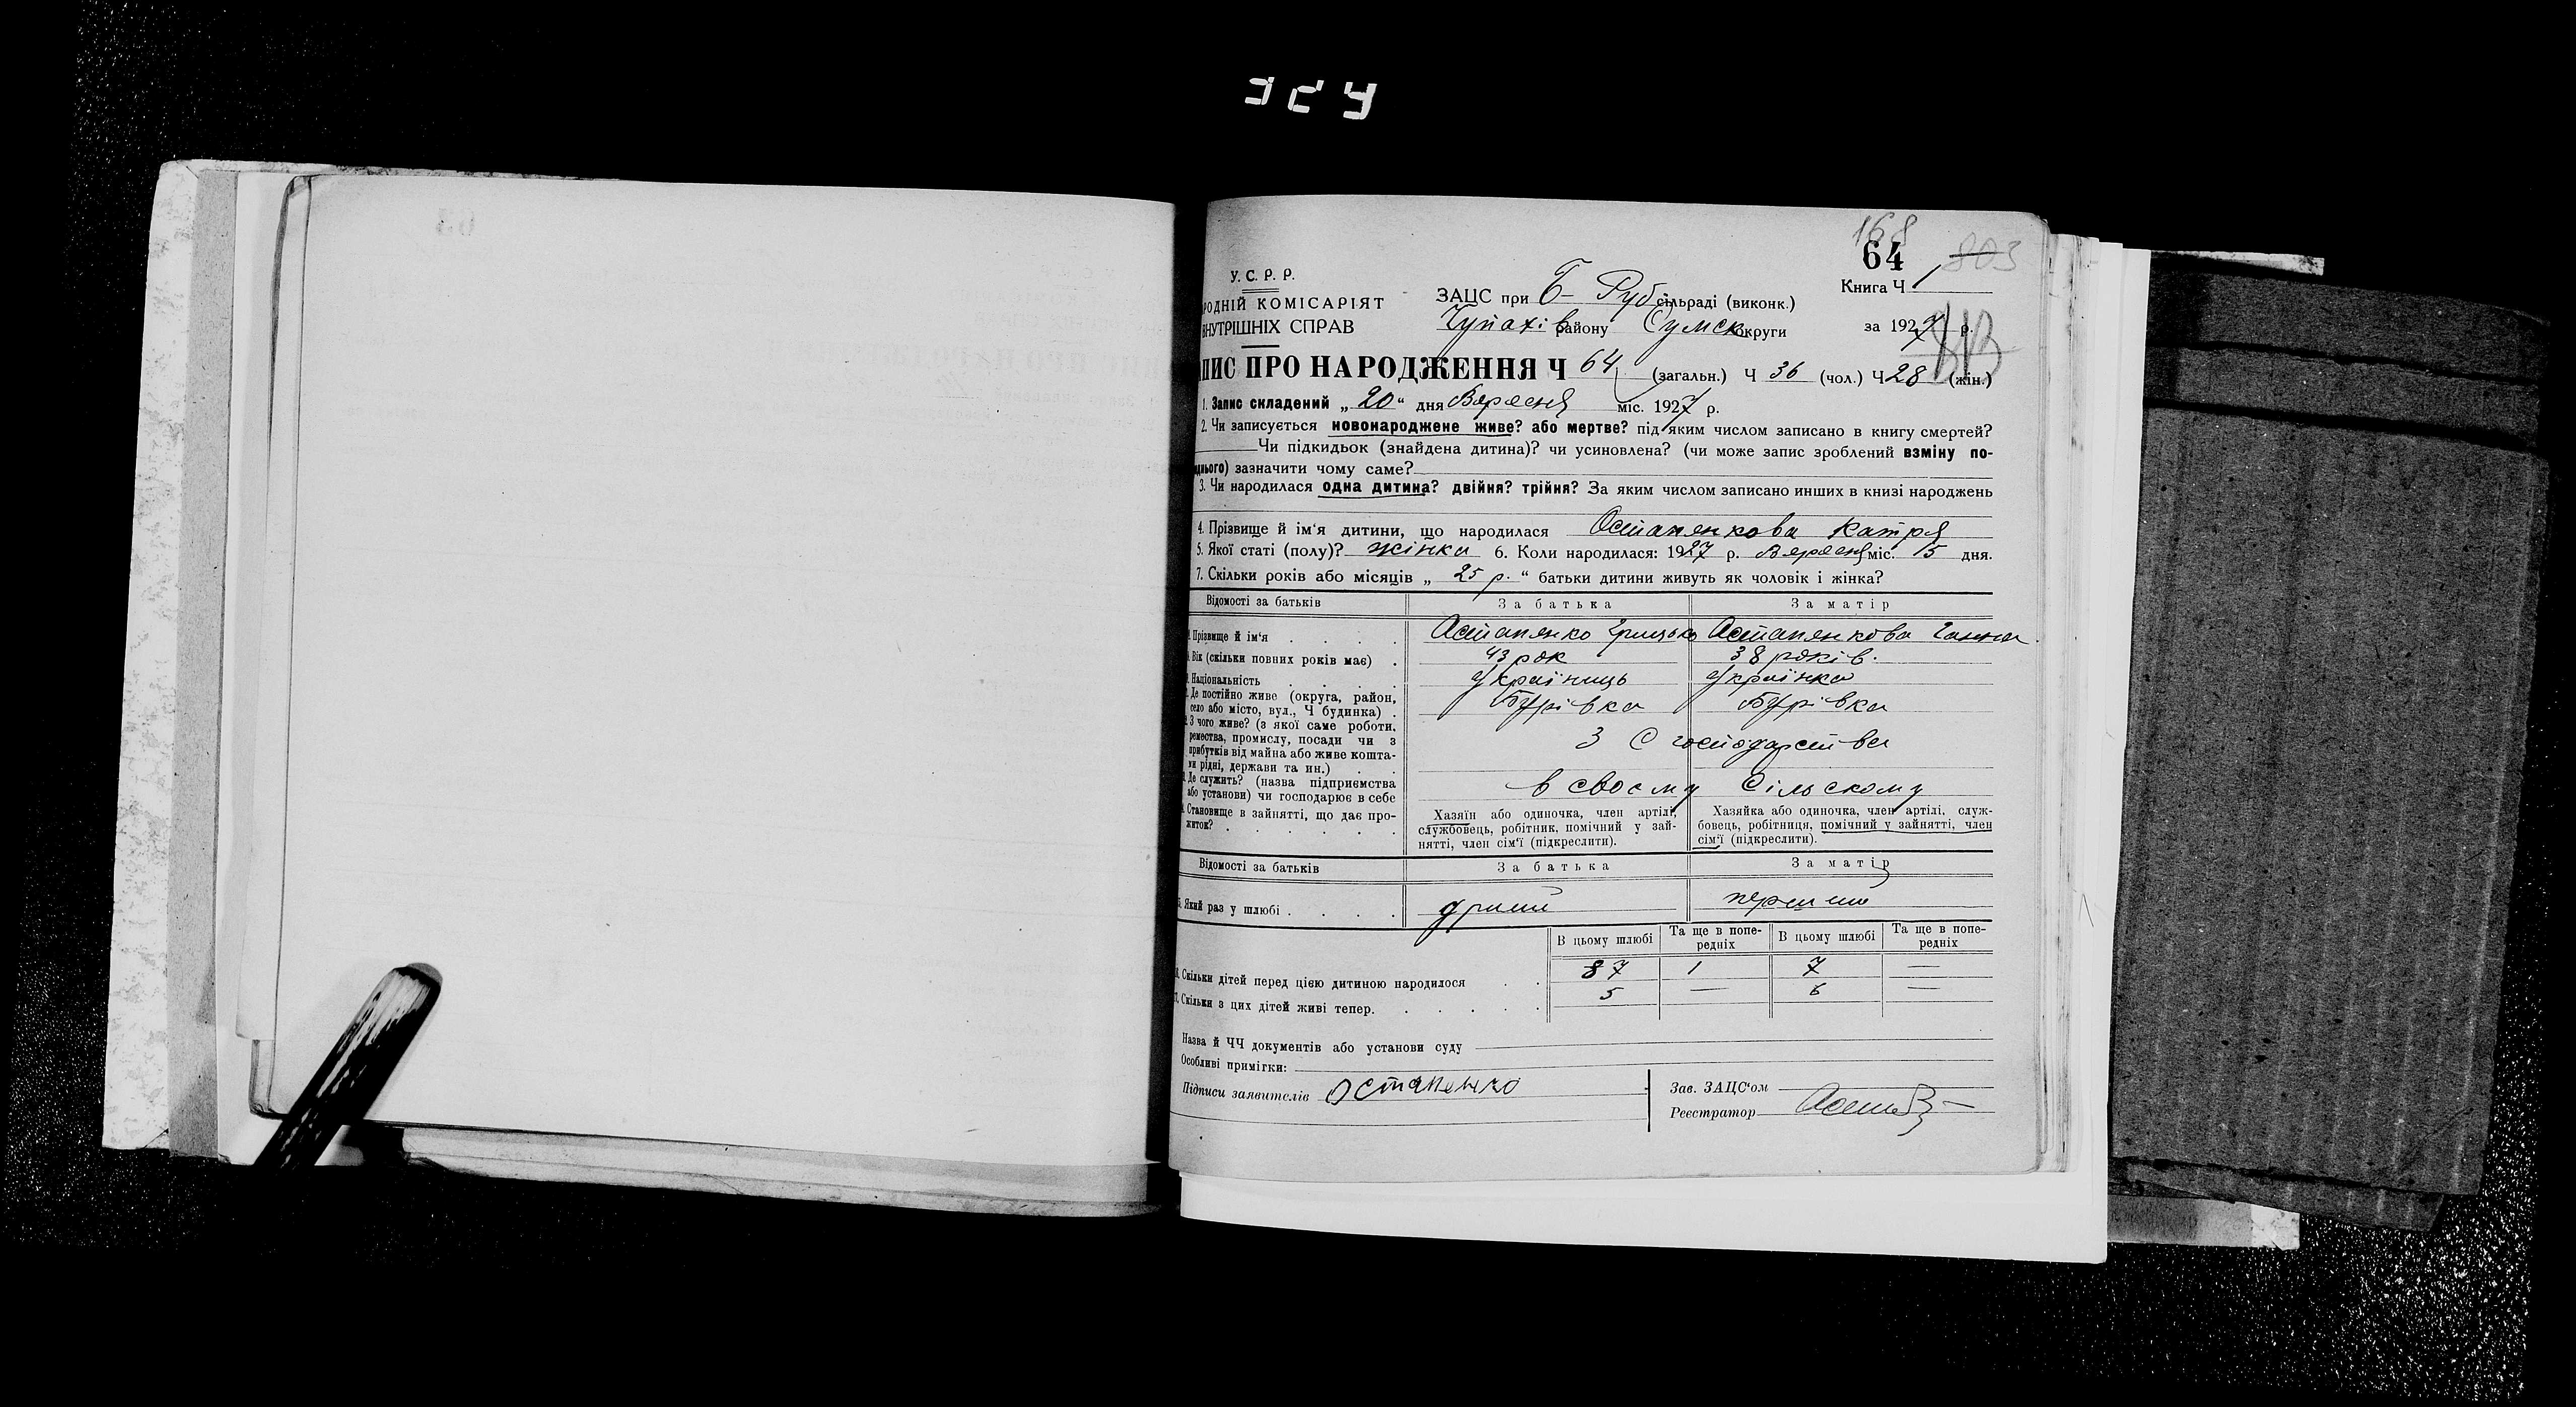 168
64 803
У. С. Р. Р.
РОДНІЙ КОМІСАРІЯТ ЗАЦС при Б- Руб сільраді (виконк.) Книга Ч 1
ВНУТРІШНІХ СПРАВ Чупахів району Сумск округи за 1927 р.
ПИС ПРО НАРОДЖЕННЯ Ч 64 (загальн.) Ч 36 (чол.) Ч 28 (жін.)
1. Запис складений „ 20 “ дня Вересня міс. 1927 р.
2. Чи записується новонароджене живе? або мертве? під яким числом записано в книгу смертей?
Чи підкидьок (знайдена дитина)? чи усиновлена? (чи може запис зроблений взміну по-
днього) зазначити чому саме?
3. Чи народилася одна дитина? двійня? трійня? За яким числом записано инших в книзі народжень
4. Прізвище й ім'я дитини, що народилася Остапенкова Катря
5. Якої статі (полу)? жінка 6. Коли народилася: 1927 р. Вересня міс. 15 дня.
7. Скільки років або місяців „ 25 р. “ батьки дитини живуть як чоловік і жінка?
Відомості за батьків За батька За матір
Прізвище й ім'я . . . . Остапенко Грицько Остапенкова Ганна
Вік (скільки повних років має) . 43 рок 38 років.
Національність . . . . Українець Українка
Де постійно живе (округа, район,
село або місто, вул., Ч будинка) . Бурівка Бурівка
З чого живе? (з якої саме роботи,
ремества, промислу, посади чи з
прибутків від майна або живе кошта- З С господарства
ми рідні, держави та ин.) . .
Де служить? (назва підприємства
або установи) чи господарює в себе в своєму Сільскому
Становище в зайнятті, що дає про-
житок? . . . . . .
Хазяїн або одиночка, член артілі,
службовець, робітник, помічний у зай-
нятті, член сім'ї (підкреслити).
Хазяйка або одиночка, член артілі, служ-
бовець, робітниця, помічний у зайнятті, член
сім'ї (підкреслити).
Відомості за батьків За батька За матір
Який раз у шлюбі . . . . другий перший
В цьому шлюбі Та ще в попе-
редніх В цьому шлюбі Та ще в попе-
редніх
Скільки дітей перед цією дитиною народилося . . 8 7 1 7 —
Скільки з цих дітей живі тепер. . . . . . 5 — 6 —
Назва й ЧЧ документів або установи суду
Особливі примітки:
Підписи заявителів Остапенко Зав. ЗАЦС'ом
Реєстратор